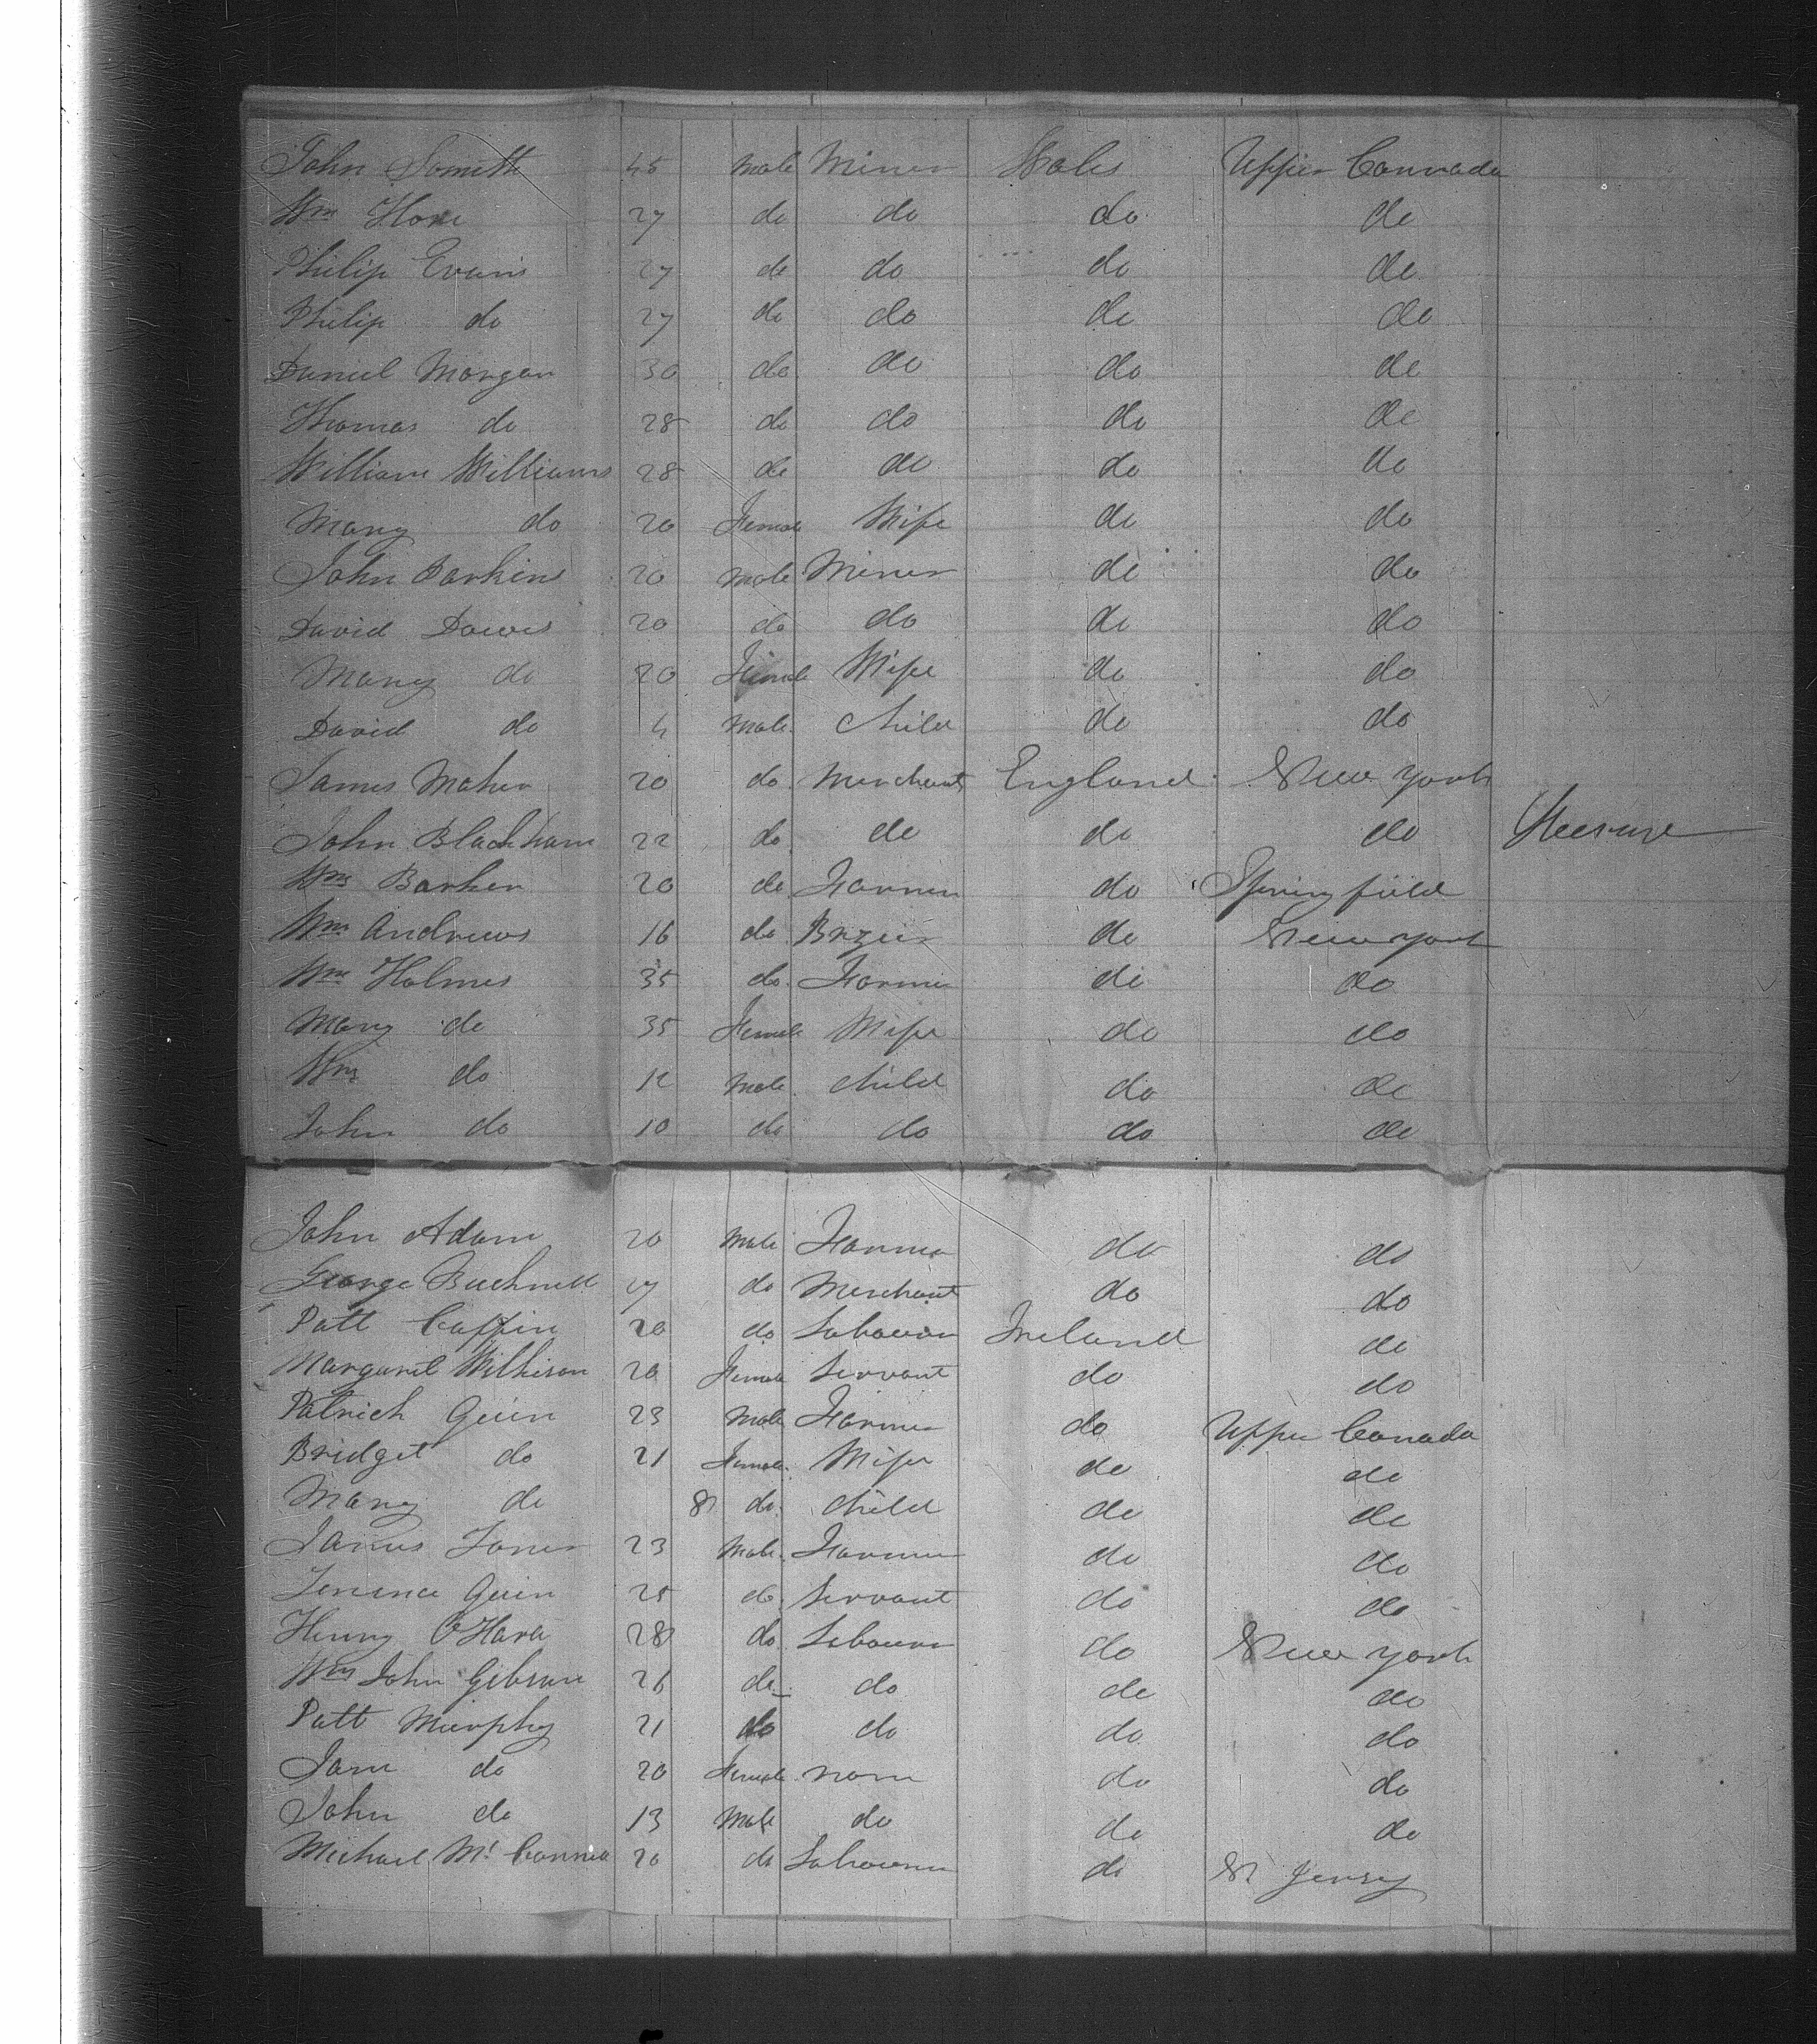 John Smith 45 male Miner Wales Upper Cannada
Wm Hone 27 do do do do
Philip Evans 27 do do do do
Philip do 27 do do do do
Daniel Morgan 30 do do do do
Thomas do 28 do do do do
William Williams 28 do do do do
Mary do 20 Female Wife do do
John Parkins 20 male Miner do do
David Dawis 20 do do do do
Mary do 20 Female Wife do do
David do 4 male child do do
James Maher 20 do Merchant England New York
John Blackham 22 do do do do
Wm Barker 20 do Farmer do Springfield
Wm Andrews 16 do do New York
Wm Holmes 35 do Farmer do do
Mary do 35 Female Wife do do
Wm do 12 male child do do
John do 10 do do do do
John Adam 20 male Farmer do do
George Bucknell 27 do Merchant do do
Patt Caffin 20 do Labourer Ireland do
Margaret Wilkison 20 Female Servant do do
Patrick Quin 23 male Farmer do Upper Canada
Bridget do 21 Female Wife do do
Mary do 8 do child do do
James Jones 23 male Farmer do do
Terence Quin 25 do Servant do do
Henry O'Hara 28 do Labourer do New York
Wm John Gibson 26 do do do do
Patt Murphy 21 do do do do
Jane do 20 Female none do do
John do 13 male do do do
Michael Mc 20 do Labourer do N Jersey